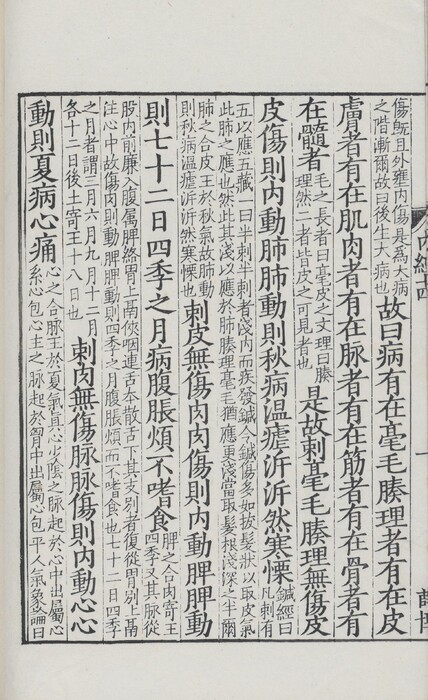 傷旣且外壅內傷是為大病之階漸爾故曰後生大病也故曰病有在毫毛腠理者有在皮
膚者有在肌肉者有在脉者有在筋者有在骨者有
在髓者毛之長者曰毫皮之文理曰腠理然二者皆皮之可見者也是故刺毫毛腠理無傷皮
皮傷則內動肺肺動則秋病溫瘧泝泝然寒慄鍼經曰凡刺有
五以應五藏一曰半刺半刺者淺內而疾發鍼令鍼傷多如拔髮狀以取皮氣此肺之應也然此其淺以應於肺腠理毫毛猶應更淺當取髮根淺深之半爾
肺之合皮王於秋氣故肺動則秋病溫瘧泝泝然寒慄也刺皮無傷肉肉傷則內動脾脾動
則七十二日四季之月病腹脹煩不嗜食脾之合肉寄王四季又其脉從
股內前廉入腹屬脾絡胃上鬲俠咽連舌本散舌下其支別者復從胃別上鬲注心中故傷肉則動脾脾動則四季之月腹脹煩而不嗜食也七十二日四季
之月者謂三月六月九月十二月各十二日後土寄王十八日也刺肉無傷脉脉傷則內動心心
動則夏病心痛心之合脉王於夏氣真心少陰之脉起於心中出屬心系心包心主之脉起於胷中出屬心包平人氣象論曰
內經十四